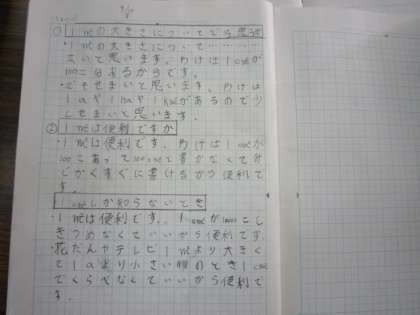 ① 1m²の大きさについてどう思うか
・1m²の大きさについて………
きいと思います。わけは1cm²が
10000こ分あるからです。
・でもせまいと思います。わけは
1aや1haや1km²があるので少
しせまいと思います。
② 1m²は便利ですか
・1m²は便利です。わけは1cm²が
こあって cm²と書かなくてみ
じかくすぐに書けるから便利で
す。
1cm²しか知らないとき
・1m²は便利です。1cm²が10000こし
きつめなくていいから便利です。
・花だんやテレビ1m²より大きく
て1aより小さい のとき1cm²
でくらべなくていいから便利で
す.